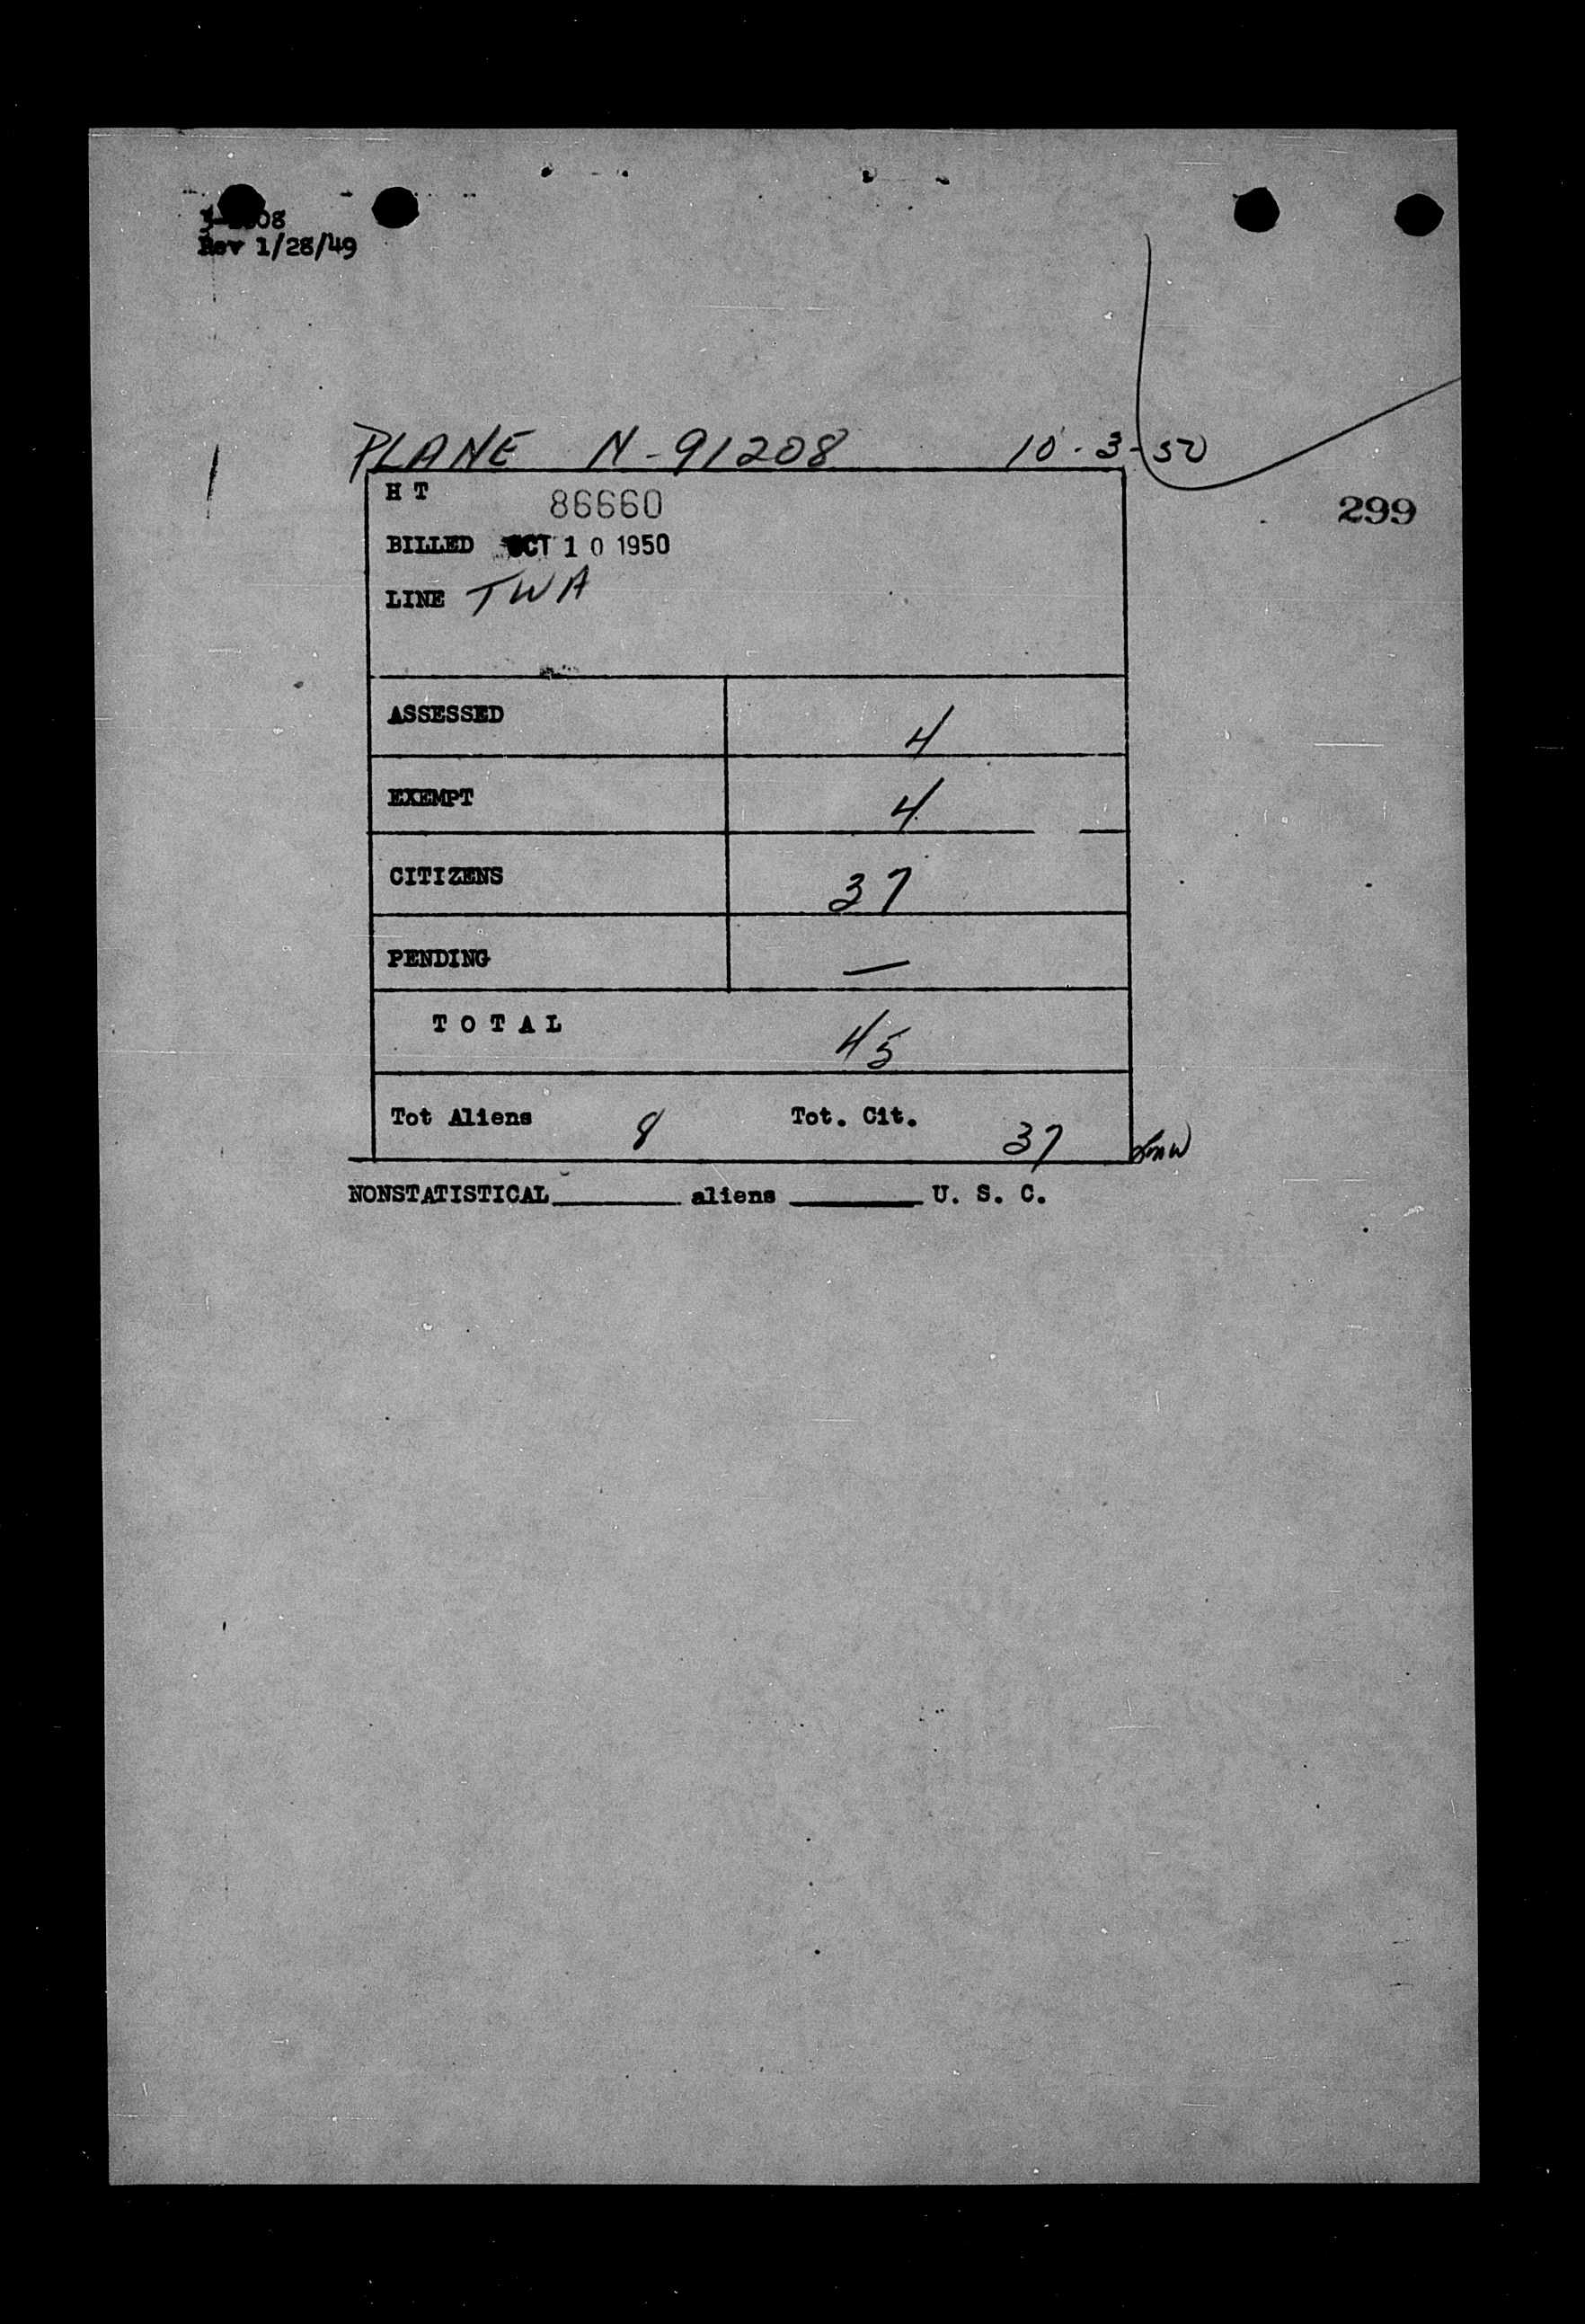 Rev 1/28/49
PLANE N-91208 10-3-50
299
H T 86660
BILLED OCT 10 1950
LINE TWA
ASSESSED 4
EXEMPT 4
CITIZENS 37
PENDING —
TOTAL 45
Tot Aliens 8 Tot. Cit. 37
NONSTATISTICAL________ aliens ________ U. S. C.